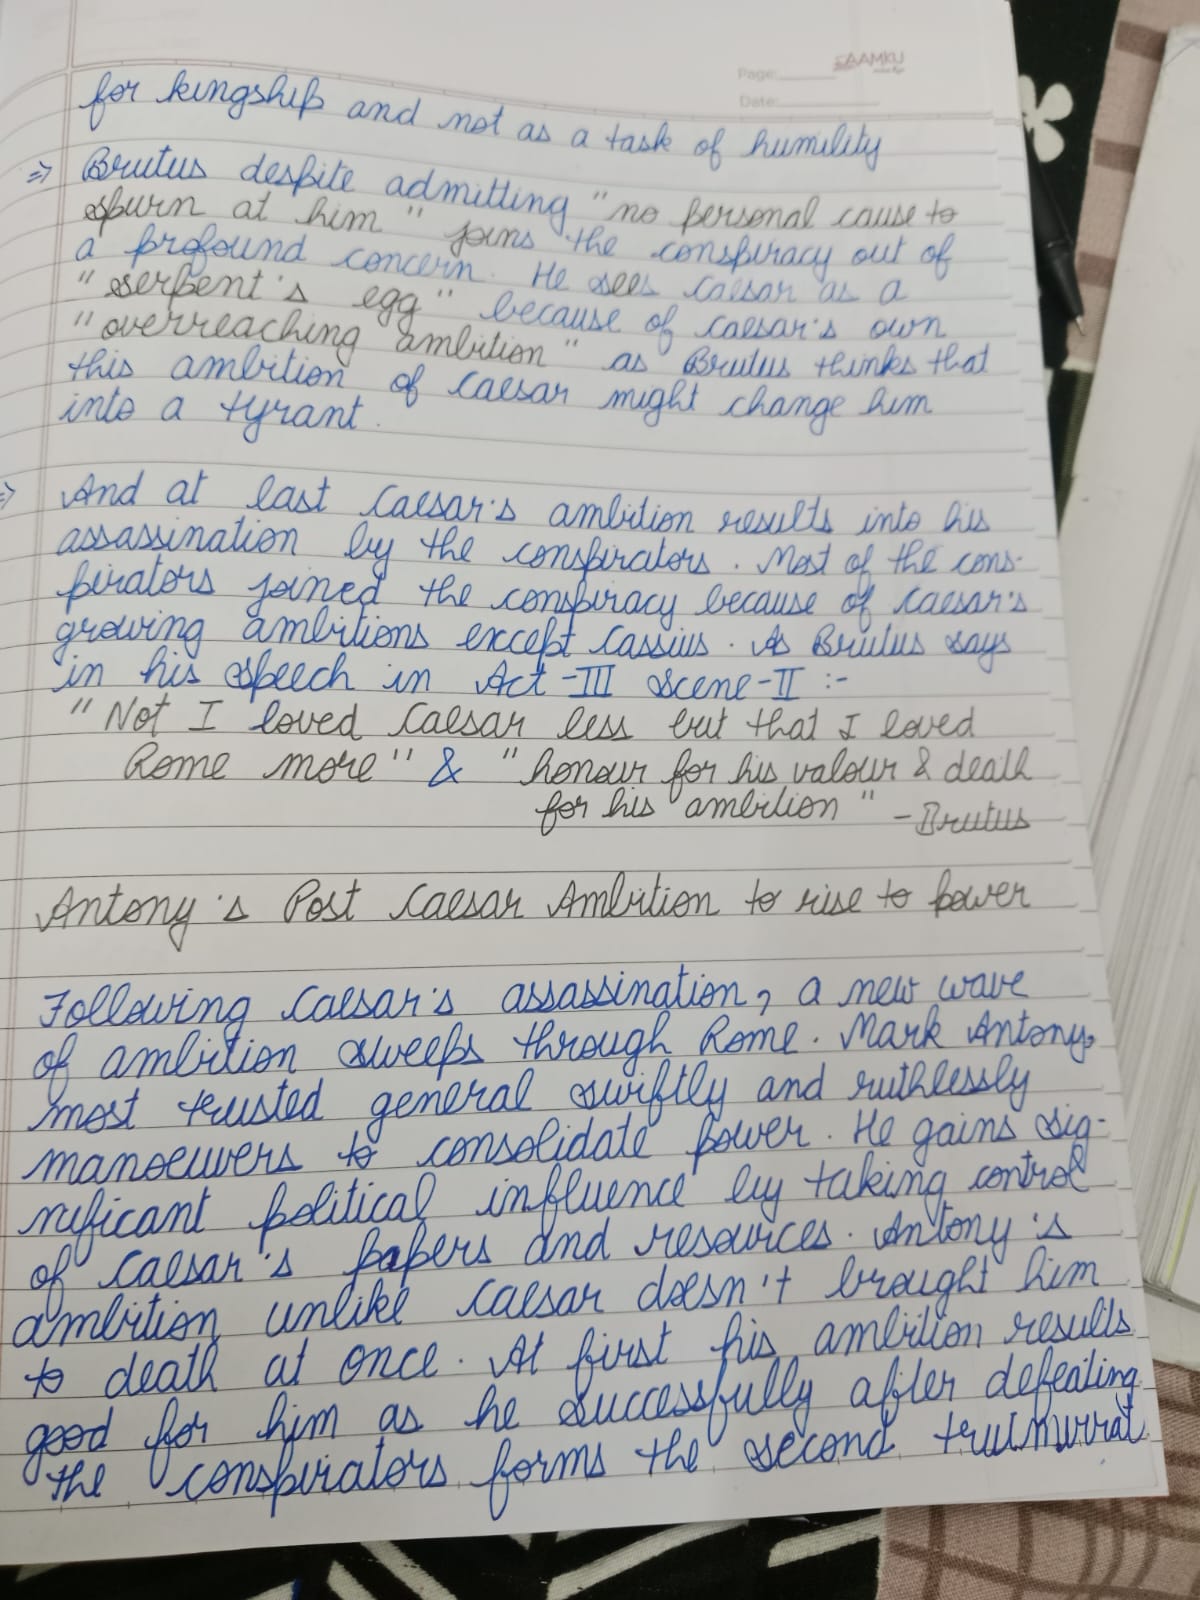 SAAMKU
Page:
Date:
for kingship and not as a task of humility
⇒ Brutus despite admitting "no personal cause to
spurn at him" joins the conspiracy out of
a profound concern. He sees Caesar as a
"serpent's egg" because of Caesar's own
"overreaching ambition" as Brutus thinks that
this ambition of Caesar might change him
into a tyrant.
⇒ And at last Caesar's ambition results into his
assassination by the conspirators. Most of the cons-
pirators joined the conspiracy because of Caesar's
growing ambitions except Cassius. As Brutus says
in his speech in Act-III Scene-II :-
"Not I loved Caesar less but that I loved
Rome more" & "honour for his valour & death
for his ambition" - Brutus
Antony's Post Caesar Ambition to rise to power
Following Caesar's assassination, a new wave
of ambition sweeps through Rome. Mark Antony,
most trusted general swiftly and ruthlessly
manoeuvers to consolidate power. He gains sig-
nificant political influence by taking control
of Caesar's papers and resources. Antony's
ambition unlike Caesar doesn't brought him
to death at once. At first his ambition results
good for him as he successfully after defeating
the conspirators forms the second